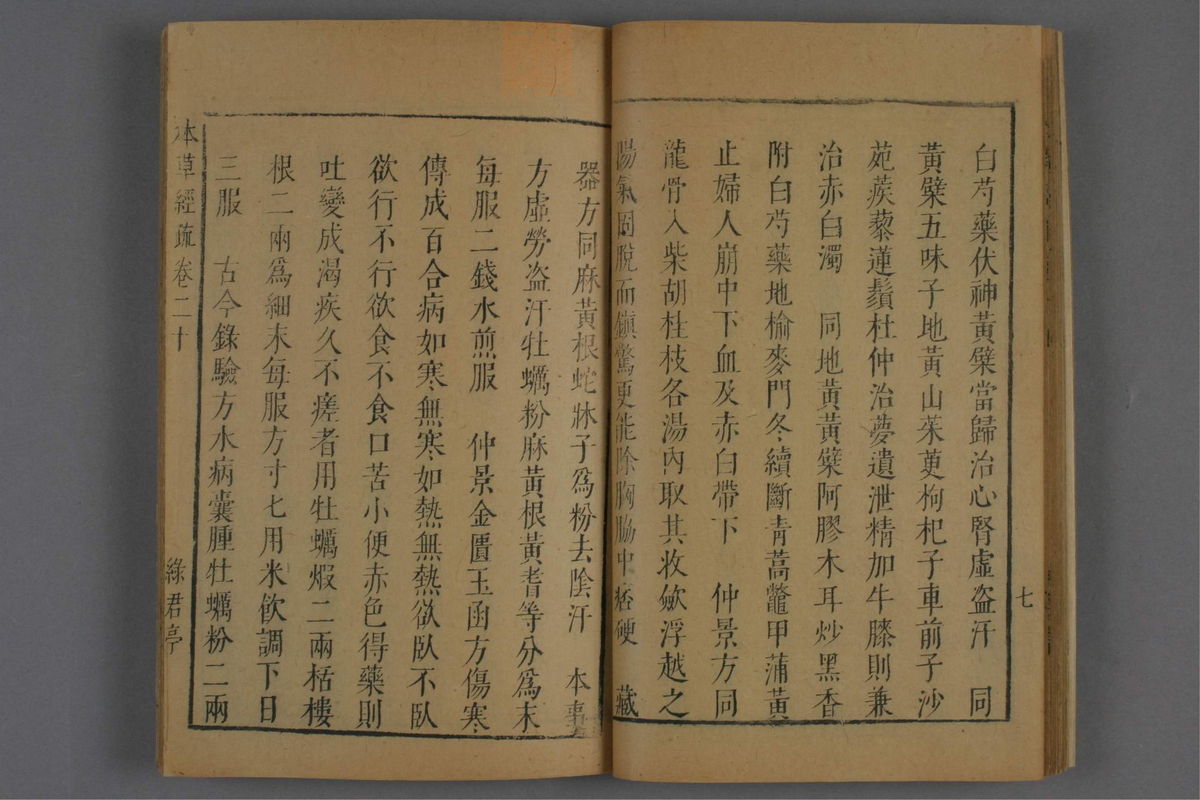 白芍藥伏神黃櫱當歸治心腎虛盜汗　同
黃櫱五味子地黃山茱萸枸杞子車前子沙
苑蒺藜蓮鬚杜仲治夢遺泄精加牛膝則兼
治赤白濁　同地黃黃櫱阿膠木耳炒黑香
附白芍藥地榆麥門冬續斷青蒿鼈甲蒲黃
止婦人崩中下血及赤白帶下　仲景方同
龍骨入柴胡桂枝各湯內取其收斂浮越之
陽氣固脫而鎮驚更能除胸脇中痞硬　藏
七
器方同麻黃根蛇牀子爲粉去陰汗　本事
方虛勞盜汗牡蠣粉麻黃根黃耆等分爲末
每服二錢水煎服　仲景金匱玉函方傷寒
傳成百合病如寒無寒如熱無熱欲臥不臥
欲行不行欲食不食口苦小便赤色得藥則
吐變成渴疾久不瘥者用牡蠣煆二兩栝樓
根二兩爲細末每服方寸七用米飮調下日
三服　古今錄驗方水病囊腫牡蠣粉二兩
本草經疏卷二十
綠君亭